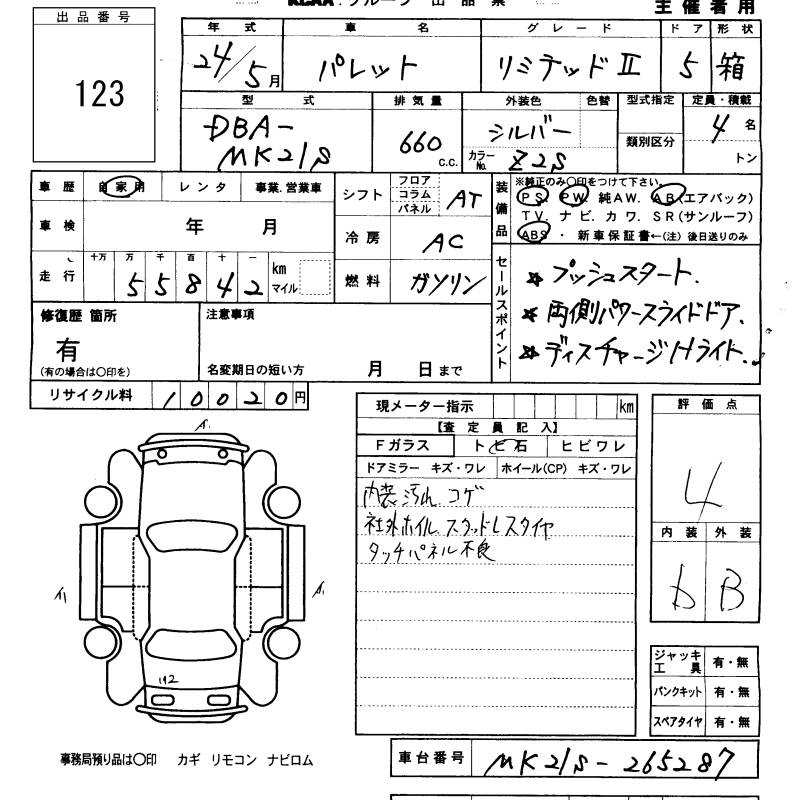 KCAA グループ 出品票 主催者用
出品番号
123
年式 車名 グレード ドア 形状
24/5月 パレット リミテッドⅡ 5 箱
型式 排気量 外装色 色替 型式指定 定員・積載
DBA-MK21S 660 c.c. シルバー 4名
カラーNo. Z2S 類別区分 トン
車歴 自家用 レンタ 事業.営業車
車検 年 月
走行 十万 万 千 百 十 一
55842 km マイル
シフト フロア コラム パネル AT
冷房 AC
燃料 ガソリン
装備品
※純正のみ〇印をつけて下さい。
PS PW 純AW. AB(エアバック)
TV. ナビ. カワ. SR(サンルーフ)
ABS ・ 新車保証書←(注) 後日送りのみ
セールスポイント
☆ プッシュスタート.
☆ 両側パワースライドドア.
☆ ディスチャージHライト.
修復歴 箇所
有
(有の場合は〇印を)
注意事項
名変期日の短い方 月 日まで
リサイクル料 10020円
現メーター指示 km
【査定員記入】
Fガラス トビ石 ヒビワレ
ドアミラー キズ・ワレ ホイール(CP) キズ・ワレ
内装汚れ コゲ
社外ホイル スタッドレスタイヤ
タッチパネル不良
評価点
4
内装 外装
b B
ジャッキ工具 有・無
パンクキット 有・無
スペアタイヤ 有・無
事務局預り品は〇印 カギ リモコン ナビロム
車台番号 MK21S-265287